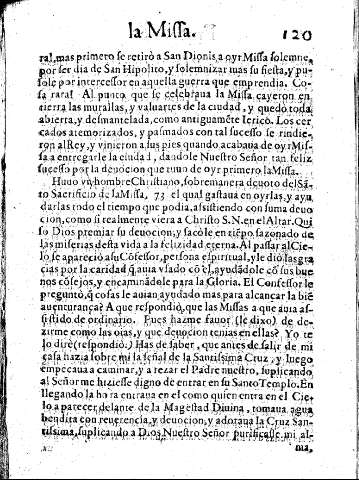 la Missa. 120
ral, mas primero se retirò à San Dionis, a oyr Missa solemne,
por ser dia de San Hipolito, y solemnizar mas su fiesta, y pu-
sole por intercessor en aquella guerra que emprendia. Co-
sa rara! Al punto que se celebraua la Missa cayeron en
tierra las murallas, y valuartes de la ciudad, y quedò toda
abierta, y desmantelada, como antiguamẽte Iericò. Los cer
cados atemorizados, y pasmados con tal sucesso se rindie-
ron al Rey, y vinieron a sus pies quando acabaua de oyr Mis-
sa a entregarle la ciudad, dandole Nuestro Señor tan feliz
sucesso por la deuocion que tuuo de oyr primero la Missa.
Huuo vn hombre Christiano, sobremanera deuoto del Sã-
to Sacrificio de la Missa, 73 el qual gastaua en oyrlas, y ayu
darlas todo el tiempo que podia, assistiendo con suma deuo
cion, como si realmente viera a Christo S.N. en el Altar. Qui
so Dios premiar su deuocion, y sacòle en tiẽpo sazonado de
las miserias desta vida a la felizidad eterna. Al passar al Cie-
lo se apareciò a su Cõfessor, persona espiritual, y le diò las gra
cias por la caridad q̃ auia vsado cõ el, ayudãdole cõ sus bue
nos cõsejos, y encaminãdole para la Gloria. El Confessor le
preguntò, q̃ cosas le auian ayudado mas para alcançar la biẽ
auenturança? A que respondiò, que las Missas a que auia as-
sistido de ordinario. Pues hazme fauor (le dixo) de de-
zirme como las oias, y que deuocion tenias en ellas? Yo te
lo dirè (respondiò.) Has de saber, que antes de salir de mi
casa hazia sobre mi la señal de la Santissima Cruz, y luego
empeçaua a caminar, y a rezar el Padre nuestro, suplicando
al Señor me hiziesse digno de entrar en su Santo Templo. En
llegando la hora entraua en el como quien entra en el Cie-
lo a parecer delante de la Magestad Diuina, tomaua agua
bendita con reuerencia, y deuocion, y adoraua la Cruz San-
tissima, suplicando a Dios Nuestro Señor purificasse mi al-
ma,